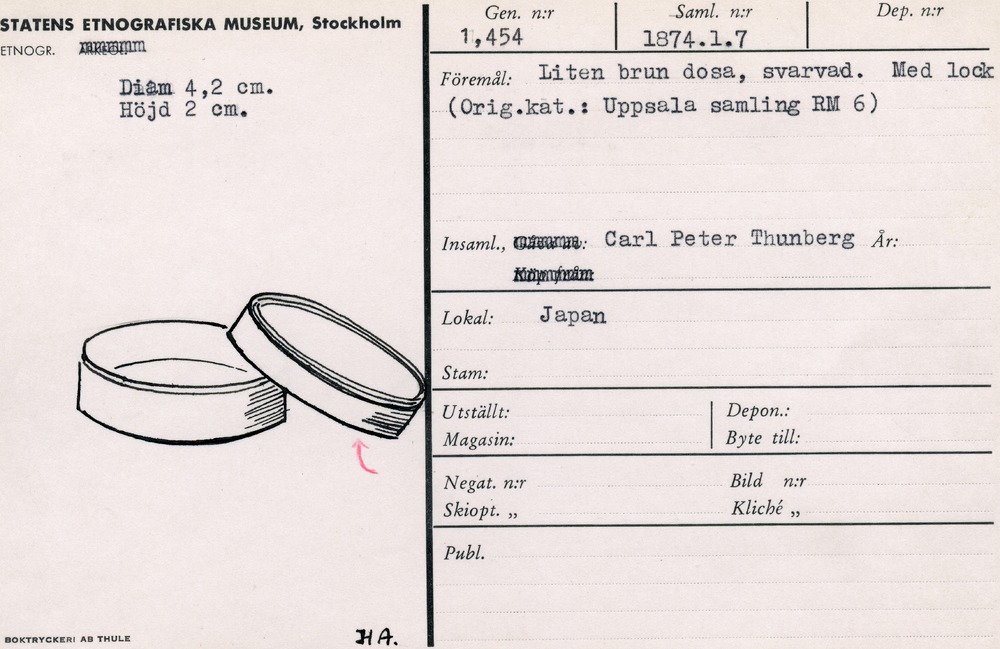 STATENS ETNOGRAFISKA MUSEUM, Stockholm
ETNOGR.
Diam 4,2 cm.
Höjd 2 cm.
HA.
BOKTRYCKERI AB THULE
Gen. n:r
1,454
Saml. n:r
1874.1.7
Dep. n:r
Föremål: Liten brun dosa, svarvad. Med lock
(Orig.kat.: Uppsala samling RM 6)
Insaml., Carl Peter Thunberg År:
Lokal: Japan
Stam:
Utställt: Depon.:
Magasin: Byte till:
Negat. n:r Bild n:r
Skiopt. „ Kliché „
Publ.